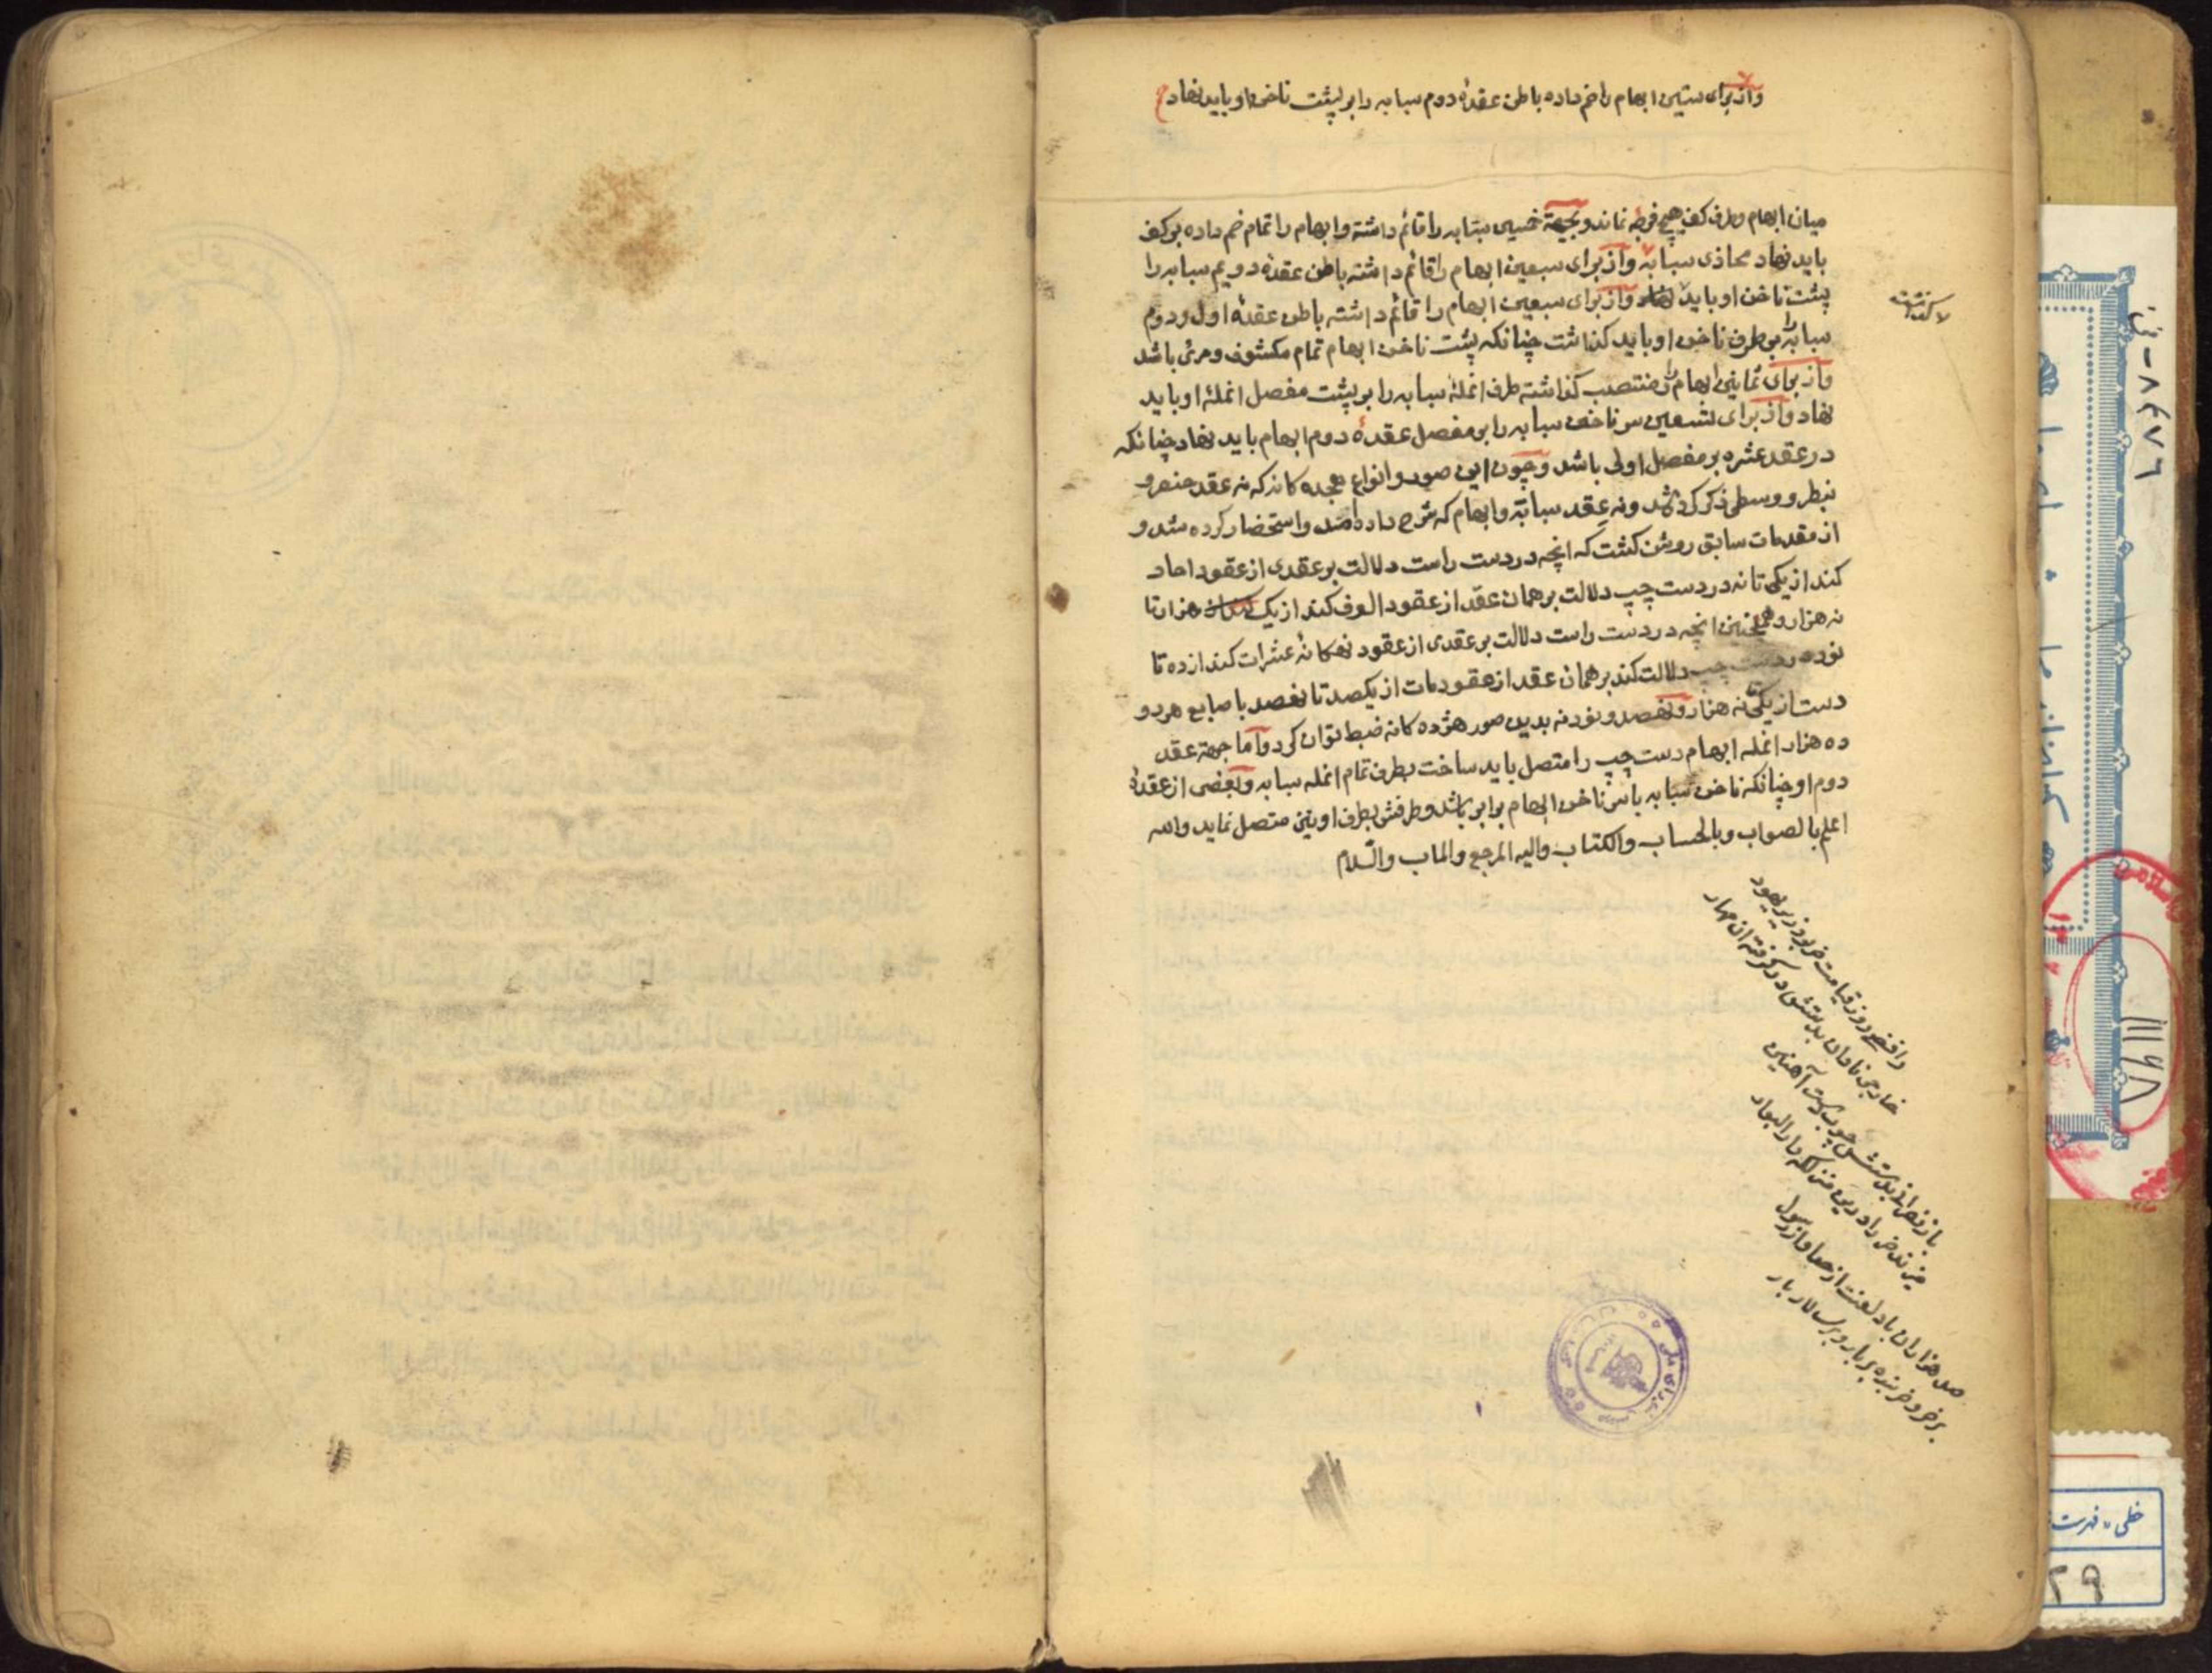 واز برای ستین ابهام را خم داده باطن عقدهٔ دوم سبابه را بر پشت ناخن او باید نهاد
میان ابهام و طرف کف هیچ فرجه نماند و بجهة خمسین سبابه را قائم داشته وابهام را تمام خم داده بر کف
باید نهاد محاذی سبابه واز برای سبعین ابهام را قائم داشته باطن عقدهٔ دویم سبابه را
پشت ناخن او باید نهاد واز برای سبعین ابهام را قائم داشته باطن عقدهٔ اول و دوم
سبابه را بر طرف ناخن او باید کذاشت چنانکه پشت ناخن ابهام تمام مکشوف و مرئی باشد
واز برای ثمانین ابهام را منتصب کذاشته طرف انملهٔ سبابه را بر پشت مفصل انملهٔ او باید
نهاد واز برای تسعین سر ناخن سبابه را بر مفصل عقدهٔ دوم ابهام باید نهاد چنانکه
در عقد عشره بر مفصل اولی باشد و چون این صور و انواع هجده کانه که نه عقد خنصر و
بنصر و وسطی ذکر کرده شد ونه عقد سبابه وابهام که شرح داده امد واستحضار کرده شد و
از مقدمات سابق روشن کشت که انچه در دست راست دلالت بر عقدی از عقود احاد
کند از یکی تا نه در دست چپ دلالت بر همان عقد از عقود الوف کند از یک هزار تا
نه هزار و همچنین انچه در دست راست دلالت بر عقدی از عقود نهکانه عشرات کند از ده تا
نود در دست چپ دلالت کند بر همان عقد از عقود مات از یکصد تا نهصد با صابع هر دو
دست از یکی تا نه هزار و نهصد و نود نه بدین صور هژده کانه ضبط توان کرد واما جهة عقد
ده هزار انمله ابهام دست چپ را متصل باید ساخت بطرف تمام انمله سبابه و بعضی از عقدهٔ
دوم او چنانکه ناخن سبابه با سر ناخن ابهام برابر باشد و طرفش بطرف او نیز متصل نماید والله
اعلم بالصواب وبالحساب والکتاب والیه المرجع والماب والسلام
رافضی روز قیامت خر بود زیر یهود
خارجی نادان بدستش در کرفته ان مهار
باز بدستش چوب دست آهنین
میزند خر را درین منزلکه دار البوار
صد هزاران باد لعنت از خدا و از رسول
بر خر و خربنده و بر بار و بر سالار بار
۸۴۷۶
۱۱۱۶۸
خطی - فهرست
۲۹